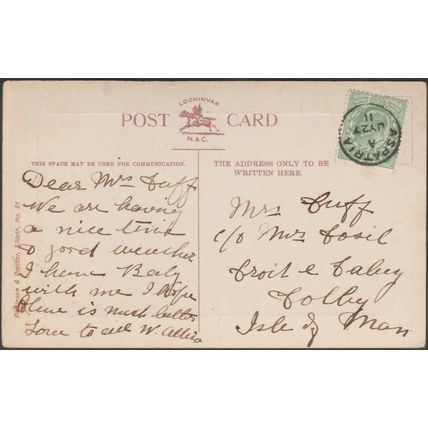 LOCHINVAR
POST CARD
N.&C.
THIS SPACE MAY BE USED FOR COMMUNICATION.
THE ADDRESS ONLY TO BE
WRITTEN HERE.
ASPATRIA
A
JY 27
11
Dear Mrs Cuff
We are having
a nice time
& good weather
I have Baby
with me I hope
is much better
Love to all W.
Mrs Cuff
c/o Mrs Cosil
Croit e Caley
Colby
Isle of Man
& Proctor, Silloth, No. 21